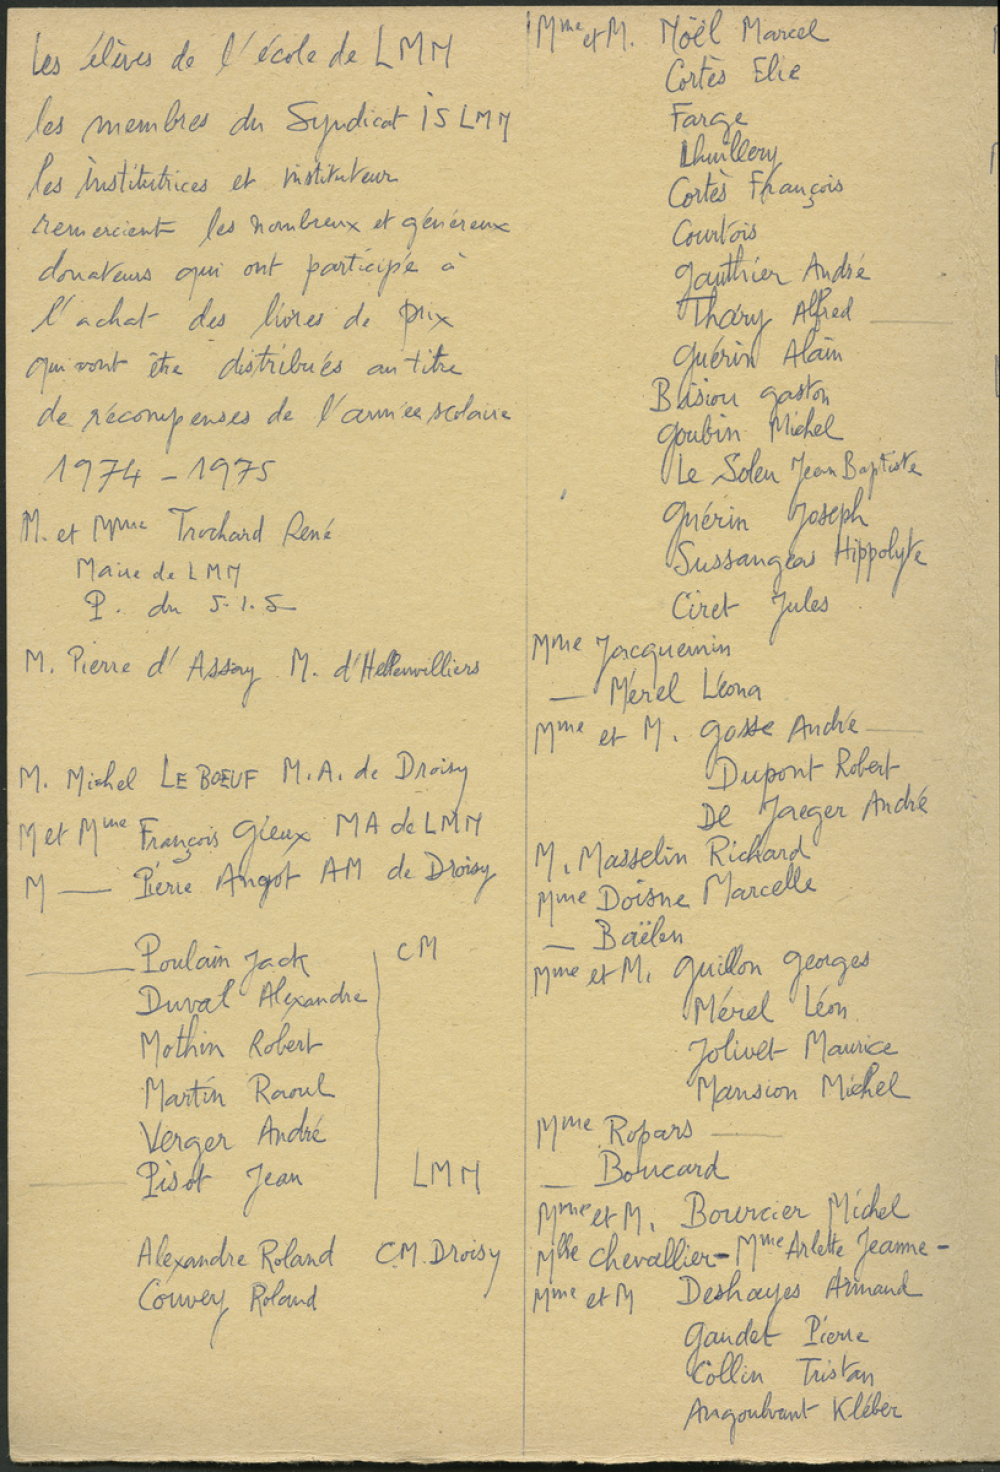 Les élèves de l'école de LMM
les membres du Syndicat IS LMM
les institutrices et instituteur
remercient les nombreux et généreux
donateurs qui ont participé à
l'achat des livres de prix
qui vont être distribués au titre
de récompenses de l'année scolaire
1974 - 1975
M. et Mme Trochard René
Maire de LMM
P. du S.I.S
M. Pierre d'Assay M. d'Hellenvilliers
M. Michel LE BOEUF M.A. de Droisy
M et Mme François Gieux MA de LMM
M — Pierre Angot AM de Droisy
— Poulain Jack CM
Duval Alexandre
Mothin Robert
Martin Raoul
Verger André
— Pisot Jean LMM
Alexandre Roland CM. Droisy
Couvey Roland
Mme et M. Noël Marcel
Cortès Elie
Farge
Lhuillery
Cortès François
Courtois
Gauthier André
Thory Alfred —
Guérin Alain
Gaston
Goubin Michel
Le Soleu Jean Baptiste
Guérin Joseph
Sussangeas Hippolyte
Ciret Jules
Mme Jacquemin
— Mérel Léona
Mme et M. Gosse André —
Dupont Robert
De Jaeger André
M. Masselin Richard
Mme Doisne Marcelle
— Baëlen
Mme et M. Guillon Georges
Mérel Léon
Jolivet Maurice
Mansion Michel
Mme Ropars —
— Boucard
Mme et M. Bourcier Michel
Mlle Chevallier - Mme Arlette Jeanne -
Mme et M Deshayes Armand
Gaudet Pierre
Collin Tristan
Angoulvant Kléber